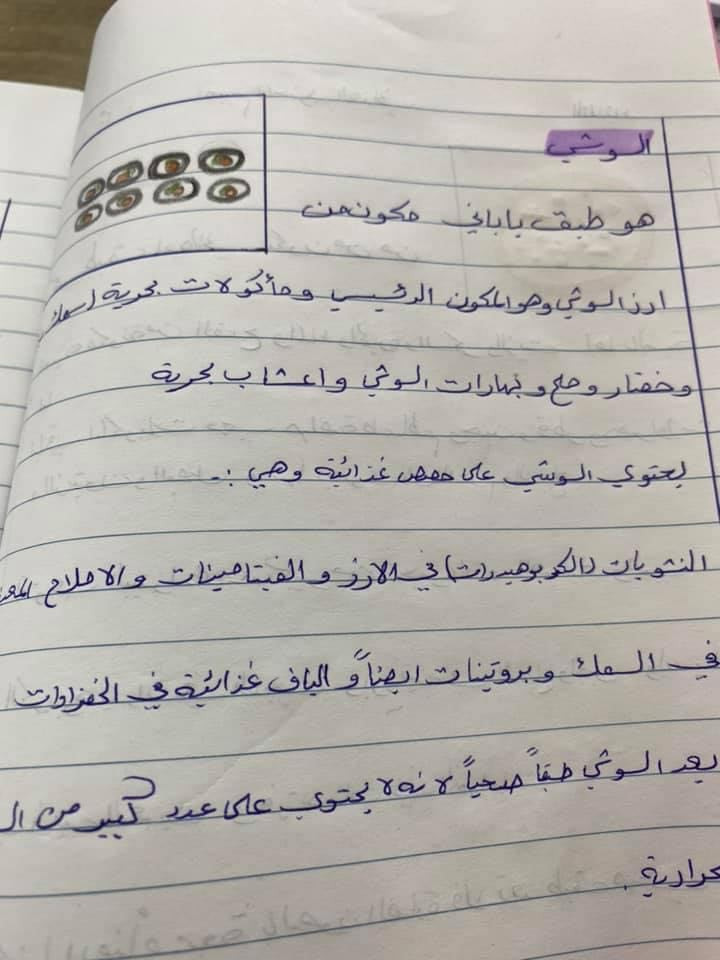 السوشي
هو طبق ياباني مكون من
ارز السوشي وهو المكون الرئيسي ومأكولات بحرية (سمك
وخضار وملح و بهارات السوشي واعشاب بحرية
يحتوي السوشي على حصص غذائية وهي :-
النشويات (الكربوهيدرات) في الارز و الفيتامينات والاملاح
في السمك و بروتينات ايضاً و الياف غذائية في الخضراوات
يعد السوشي طبقاً صحياً لانه لا يحتوي على عدد كبير من
حرارية .